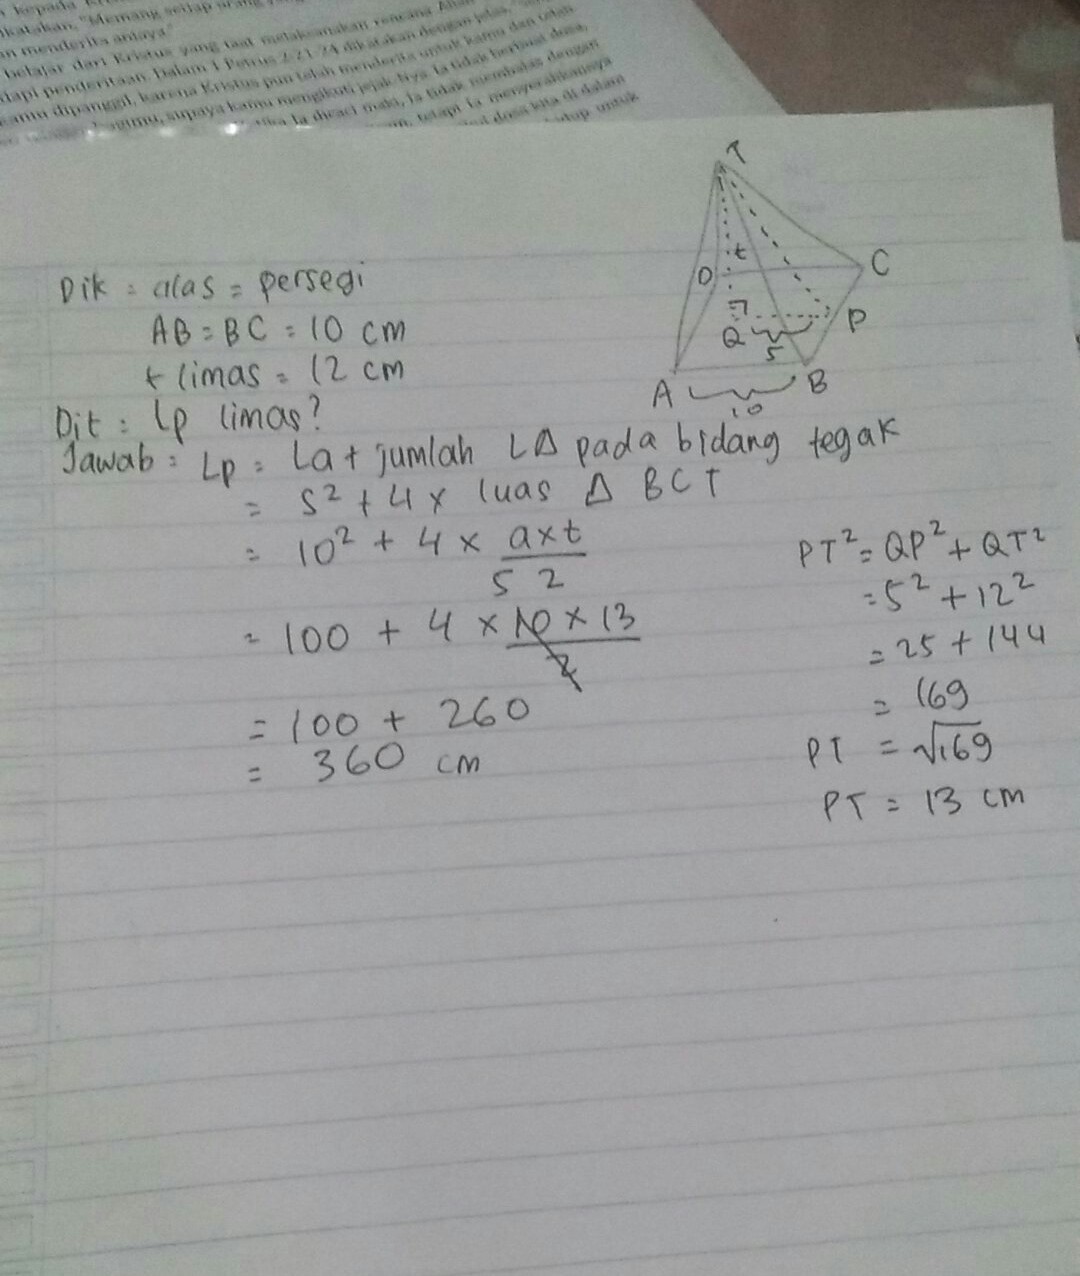 kepada
katakan, "Memang setiap orang yang
menderita aniaya"
belajar dari Kristus yang taat melaksanakan rencana Allah
tapi penderitaan. Dalam 1 Petrus 2:21-24 dikatakan dengan jelas,
kamu dipanggil, karena Kristus pun telah menderita untuk kamu dan telah
bagimu, supaya kamu mengikuti jejak-Nya. Ia tidak berbuat dosa,
Ia dicaci maki, Ia tidak membalas dengan
tetapi Ia menyerahkannya
dosa kita di dalam
hidup untuk
T
t
D
C
Q
P
5
A
B
10
Dik = alas = persegi
AB = BC = 10 cm
t limas = 12 cm
Dit : Lp limas?
Jawab = Lp = La + jumlah L∆ pada bidang tegak
= s² + 4 x luas ∆ BCT
= 10² + 4 x a x t
2
= 100 + 4 x 10 x 13
5
2
= 100 + 260
= 360 cm
PT² = QP² + QT²
= 5² + 12²
= 25 + 144
= 169
PT = √169
PT = 13 cm